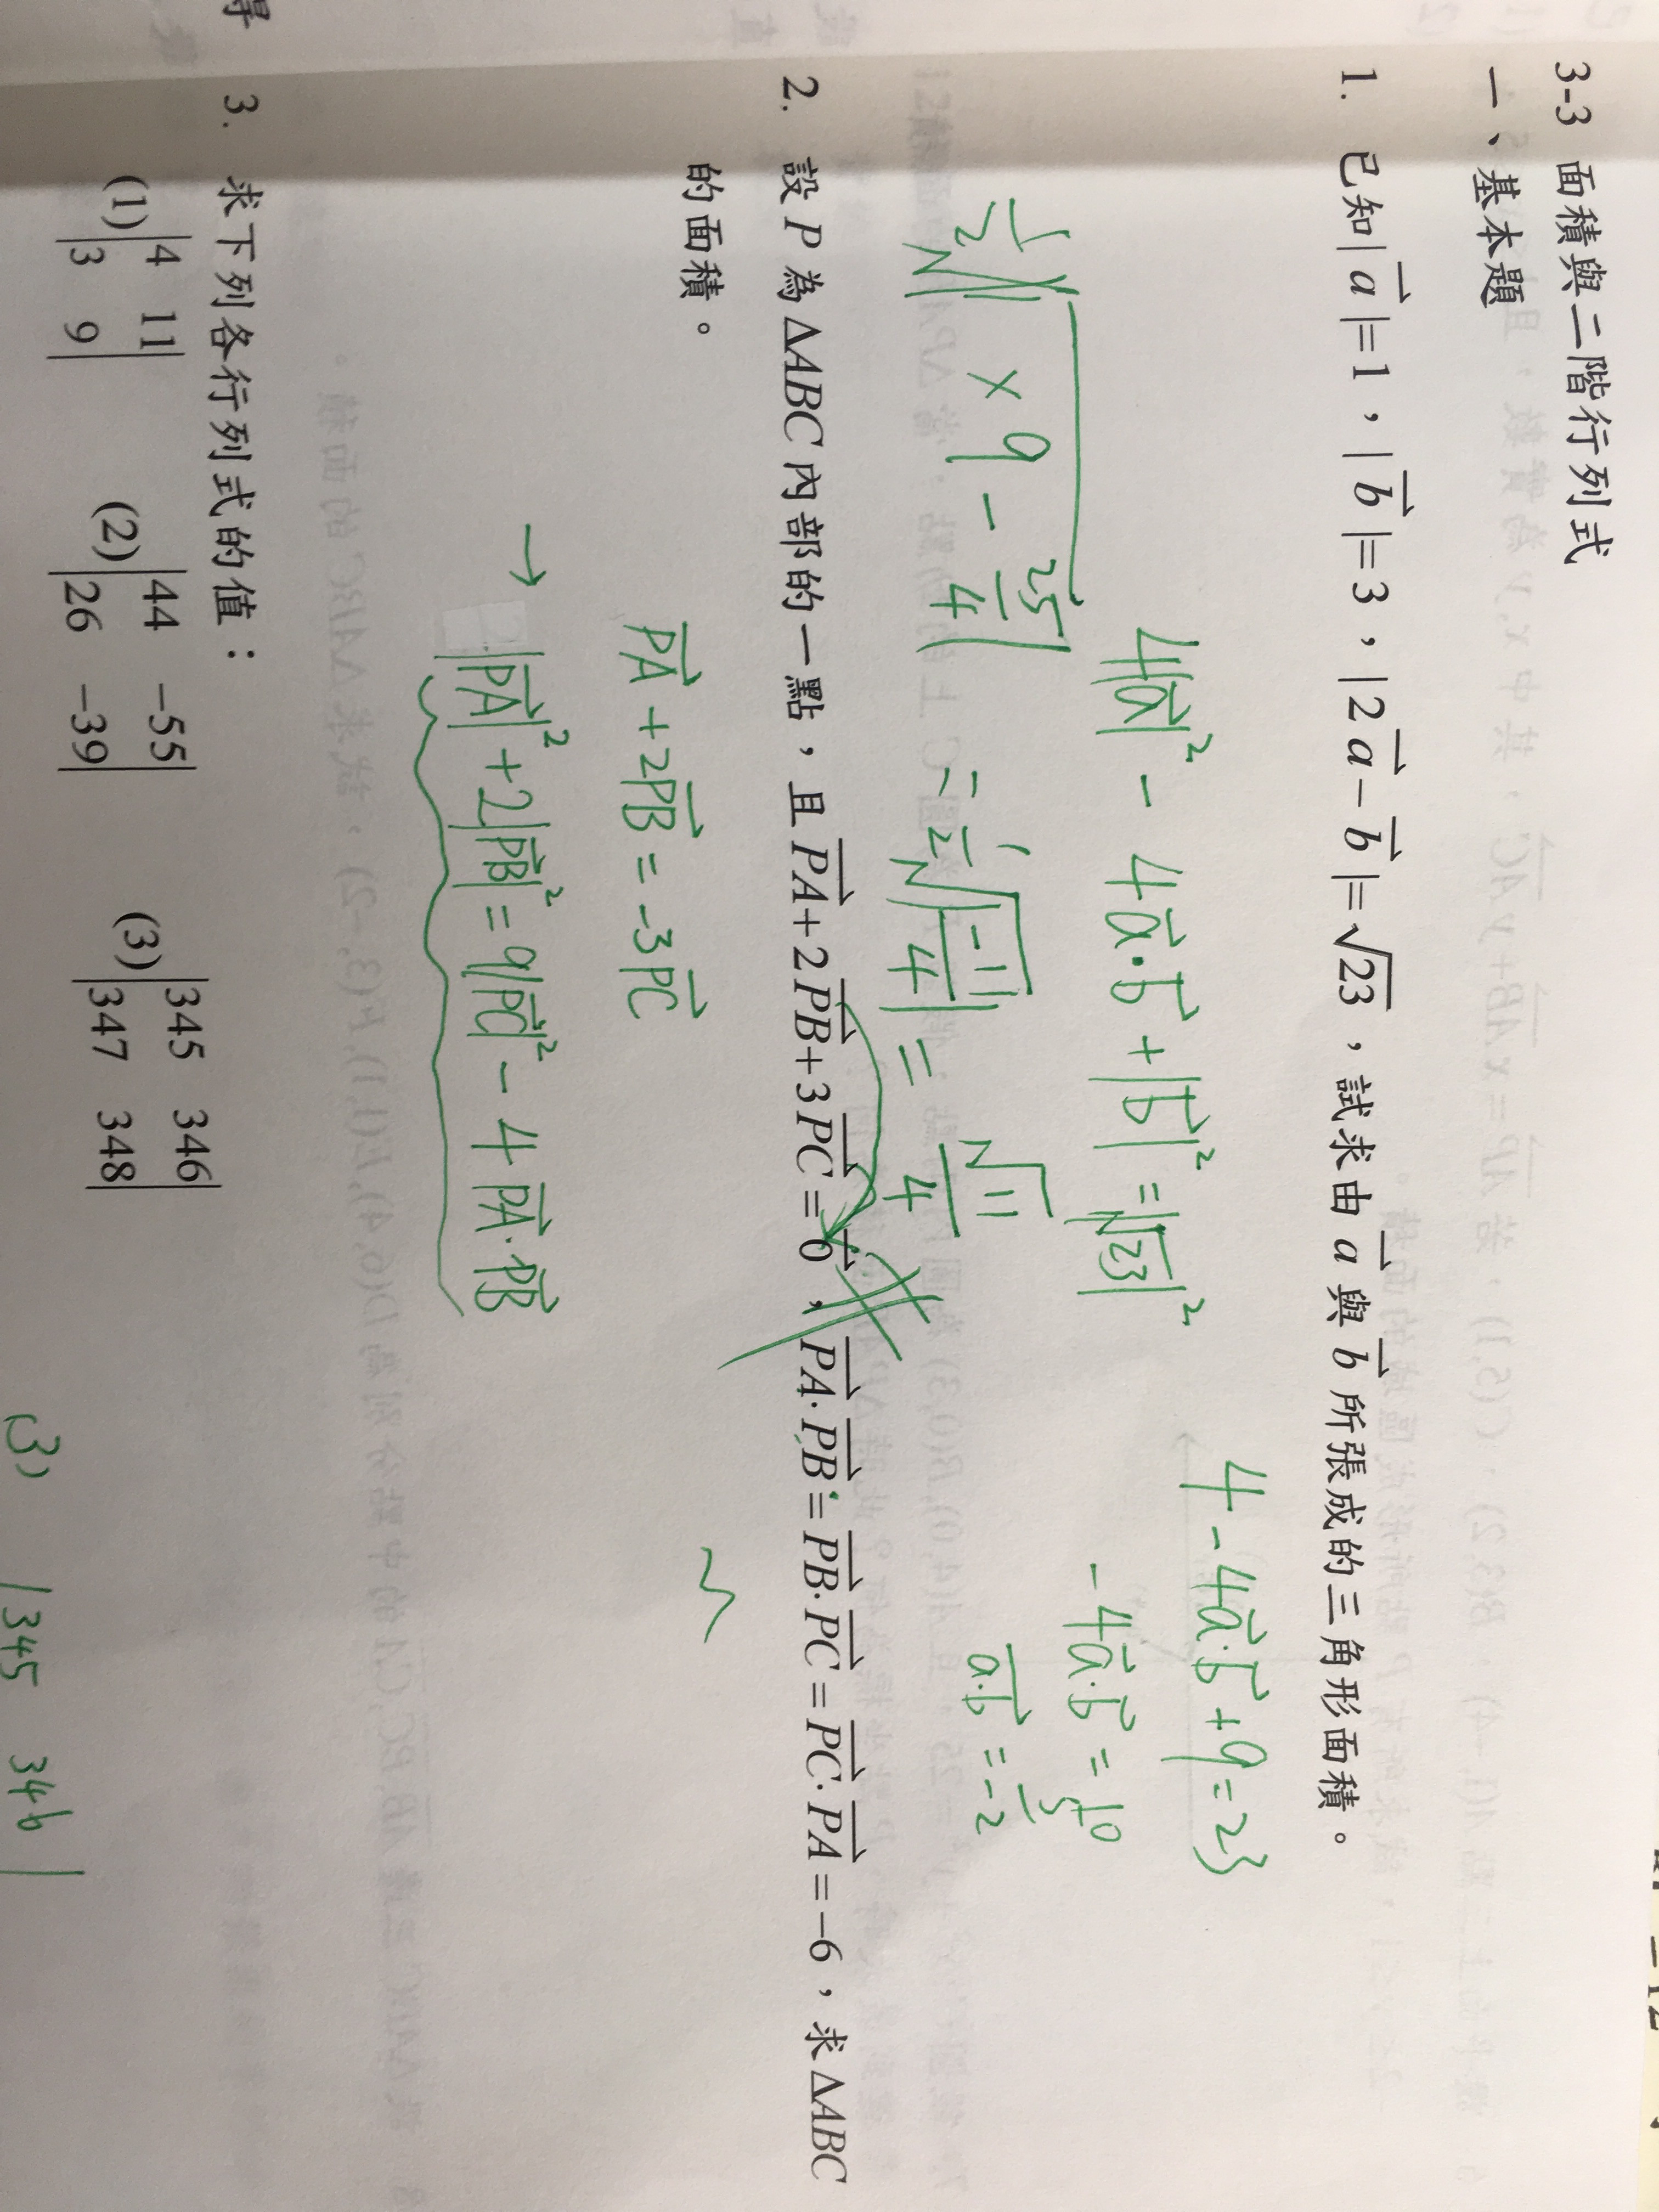 3-3 面積與二階行列式
一、基本題
1. 已知|a⃗|=1，|b⃗|=3，|2a⃗−b⃗|=√23，試求由a⃗與b⃗所張成的三角形面積。
4−4a⃗·b⃗+9=23
4|a⃗|²−4a⃗·b⃗+|b⃗|²=|√23|²
−4a⃗·b⃗=10
a⃗·b⃗=5/−2
1/2√1×9−25/4
=1/2√11/4=√11/4
2. 設P為ΔABC內部的一點，且PA⃗+2PB⃗+3PC⃗=0⃗，PA⃗·PB⃗=PB⃗·PC⃗=PC⃗·PA⃗=−6，求ΔABC
的面積。
PA⃗+2PB⃗=−3PC⃗
→ |PA⃗|²+2|PB⃗|²=9|PC⃗|²−4PA⃗·PB⃗
3. 求下列各行列式的值：
(1) |4 11| (2) |44 −55| (3) |345 346|
|3 9| |26 −39| |347 348|
(3) |345 346|